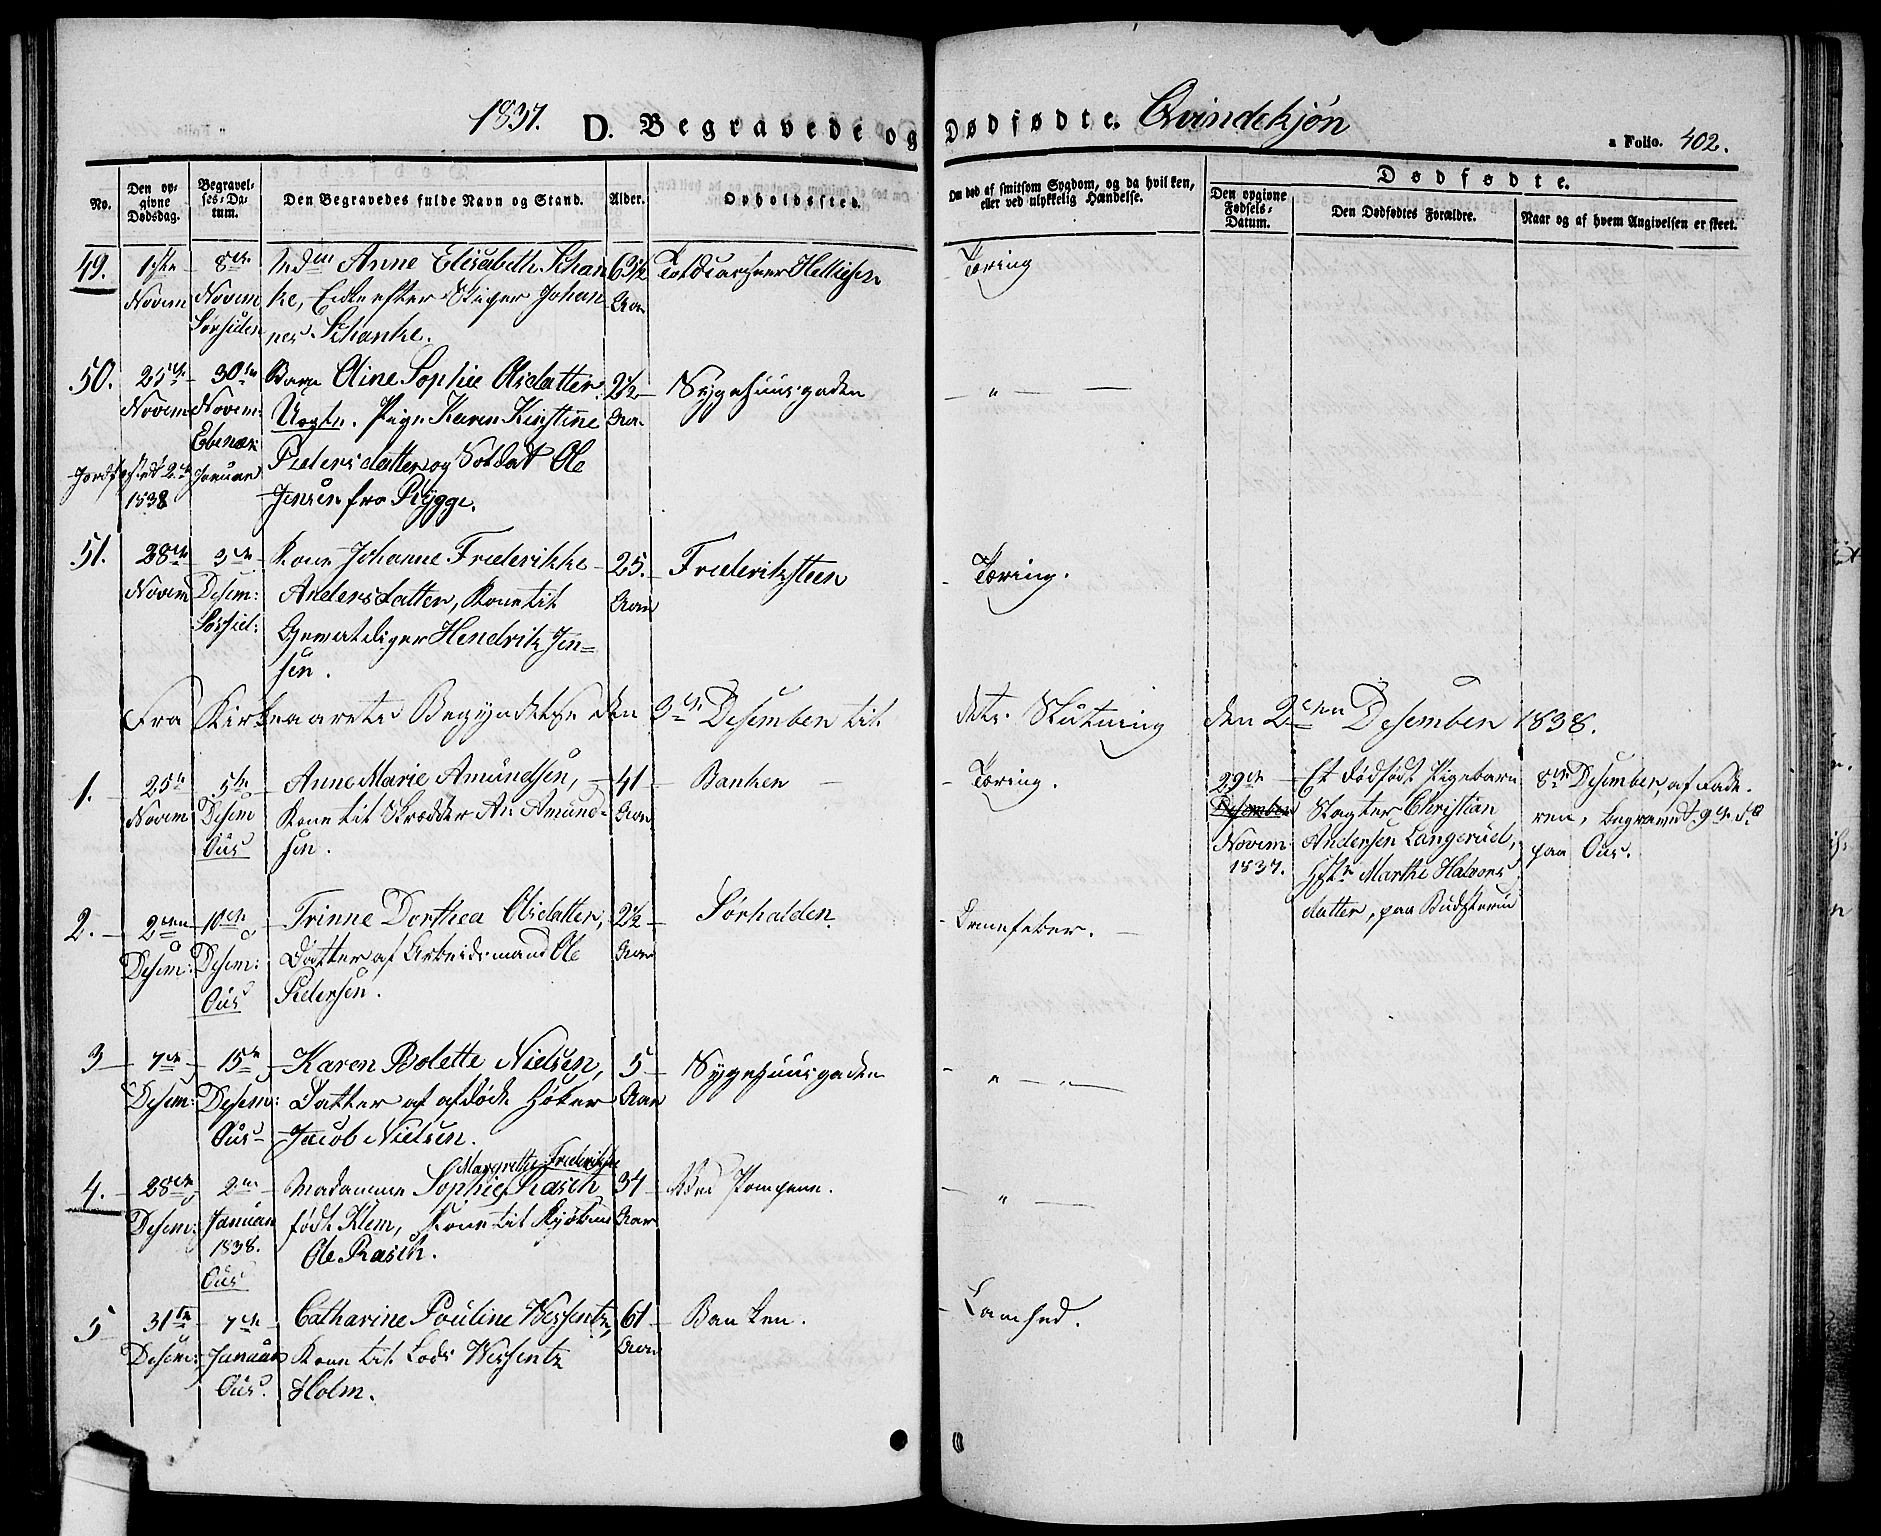 1837. D. Begravede og Dødfødte. Qvindekjøn
a Folio. 402.
No.
Den op-
givne
Dødsdag.
Begravel-
ses-Da-
tum.
Den Begravedes fulde Navn og Stand.
Alder.
Opholdssted.
Om død af smitsom Sygdom, og da hvilken,
eller ved ulykkelig Hændelse.
Dødfødte.
Den opgivne
Fødsels-
Datum.
Den Dødfødtes Forældre.
Naar og af hvem Angivelsen er skeet.
49.
1ste
Novem
8de
Novem
Sørsiden
Mdm Anne Elisabeth Schan
ke, Enke efter Stiger Johan
nes Schanke.
63½
Aar
Tæring
50.
25de
Novem
30te
Novem:
Ebenær
Jordfæstet 2de Januar
1838
Barn Oline Sophie Olsdatter.
Uægte. Pige Karen Kirstine
Pedersdatter og Soldat Ole
Jensen fra Rygge.
2½
Aar
Sygehuusgaden
— " — —
51.
28de
Novem
3de
Desem:
Sørsid:
Kone Johanne Frederikke
Andersdatter, Kone til
Gevaldiger Hendrik Jen=
sen.
25.
Aar
Frederiksteen
Tæring.
Fra Kirkeaarets Begyndelse den 3de Desember til dets Slutning den 2den Desember 1838.
1.
25de
Novem
5te
Desem
Ous
Anne Marie Amundsen,
Kone til Skrædder An: Amund-
sen.
41
Aar
Banken
Tæring.
29de
Desember
Novem:
1837.
Et dødfødt Pigebarn
Slagter Christian
Andersen Langerud,
Hst Marthe Halvors
datter, paa
8de Desember, af Fade-
ren, begravet 9de ds
paa Ous.
2.
2den
Desem:
10de
Desem:
Ous
Trinne Dorthea Olsdatter,
Datter af Arbeidsmand Ole
Pedersen.
2½
Aar
Sørhalden.
3
7de
Desem:
15de
Desem:
Ous
Karen Bolette Nielsen,
Datter af afdøde Høker
Jacob Nielsen.
5
Aar
Sygehuusgaden
— " — " —
4.
28de
Desem:
2den
Januar
1838.
Ous
Margrethe Frederikke
Madamme Sophie Rasch
født Klem, Kone til Kjøbm
Ole Rasch.
34
Aar
Ved Pompene.
— " —
5
31te
Desem:
7de
Januar
Ous.
Catharine Pouline Wessentz,
Kone til Lods Wessentz
Holm.
61
Aar
Banken.
Lamhed.